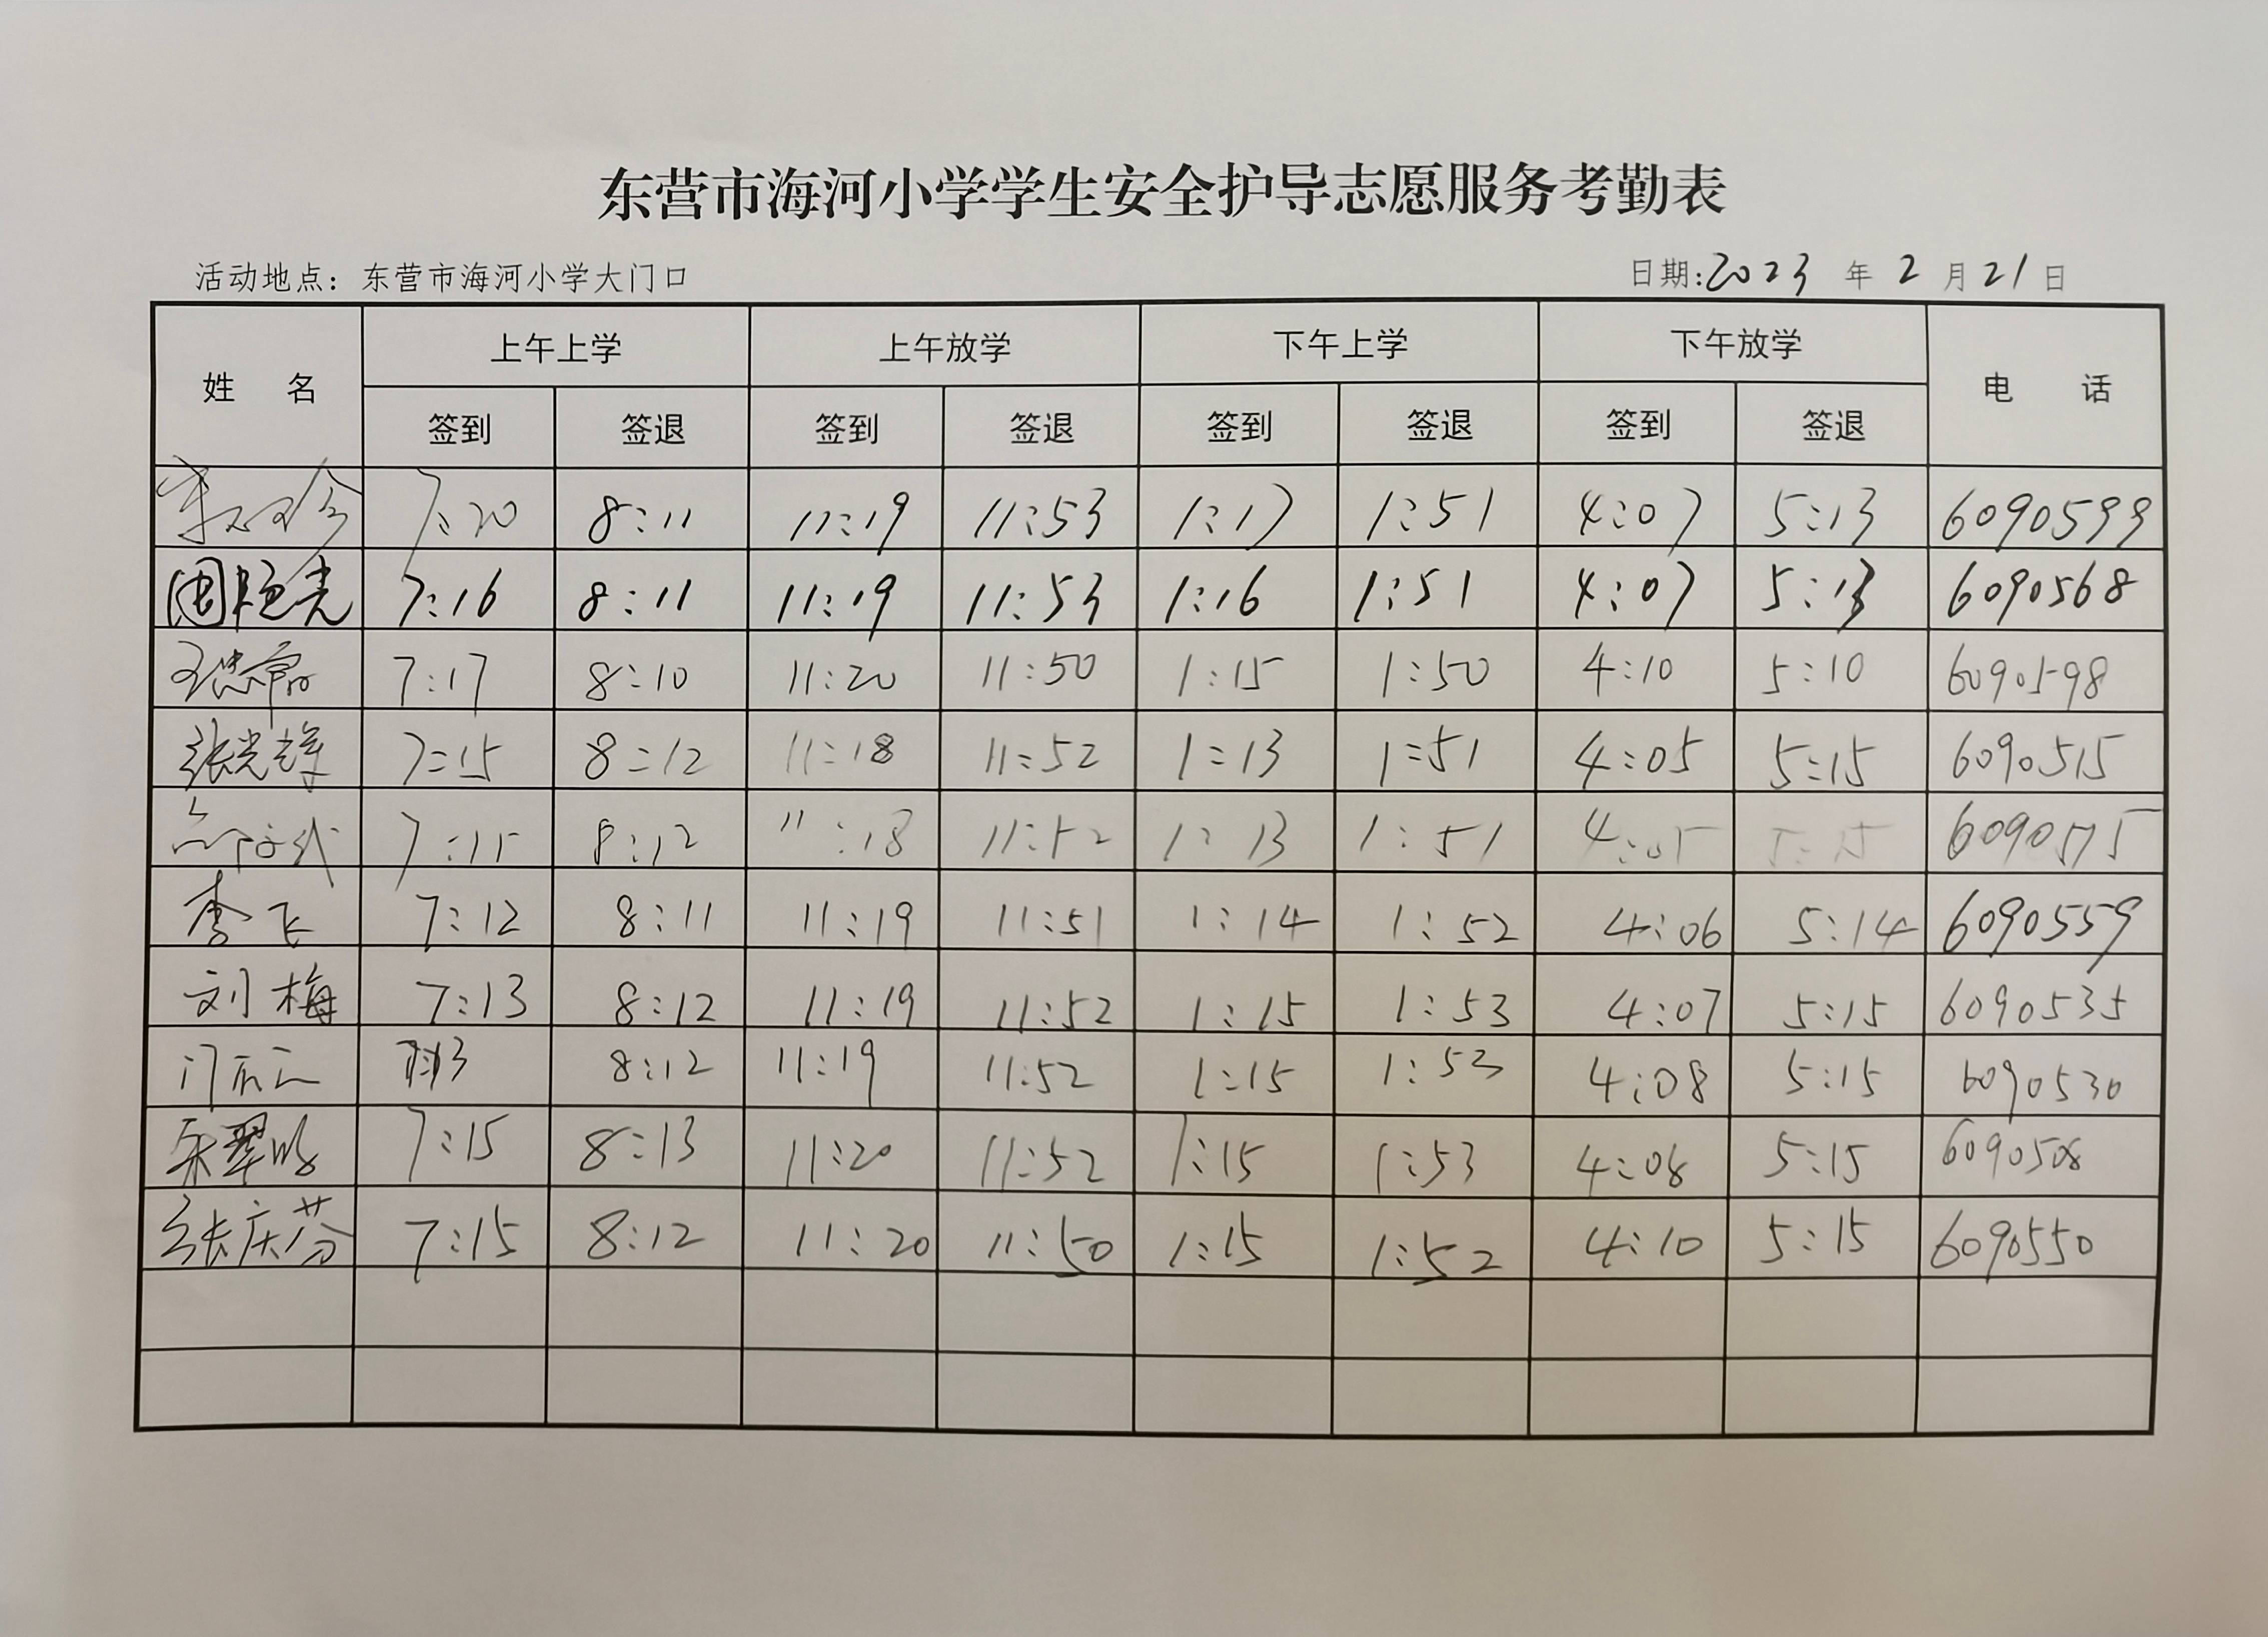 东营市海河小学学生安全护导志愿服务考勤表
活动地点：东营市海河小学大门口 日期:2023 年 2 月 21 日
姓 名 上午上学 上午放学 下午上学 下午放学 电 话
签到 签退 签到 签退 签到 签退 签到 签退
7:20 8:11 11:19 11:53 1:17 1:51 4:07 5:13 6090599
7:16 8:11 11:19 11:53 1:16 1:51 4:07 5:13 6090568
7:17 8:10 11:20 11:50 1:15 1:50 4:10 5:10 6090598
张光辉 7:15 8:12 11:18 11:52 1:13 1:51 4:05 5:15 6090515
7:15 8:12 11:18 11:52 1:13 1:51 4:05 5:15 6090575
李飞 7:12 8:11 11:19 11:51 1:14 1:52 4:06 5:14 6090559
刘梅 7:13 8:12 11:19 11:52 1:15 1:53 4:07 5:15 6090535
8:12 11:19 11:52 1:15 1:53 4:08 5:15 6090530
7:15 8:13 11:20 11:52 1:15 1:53 4:08 5:15 6090508
张庆芬 7:15 8:12 11:20 11:50 1:15 1:52 4:10 5:15 6090550